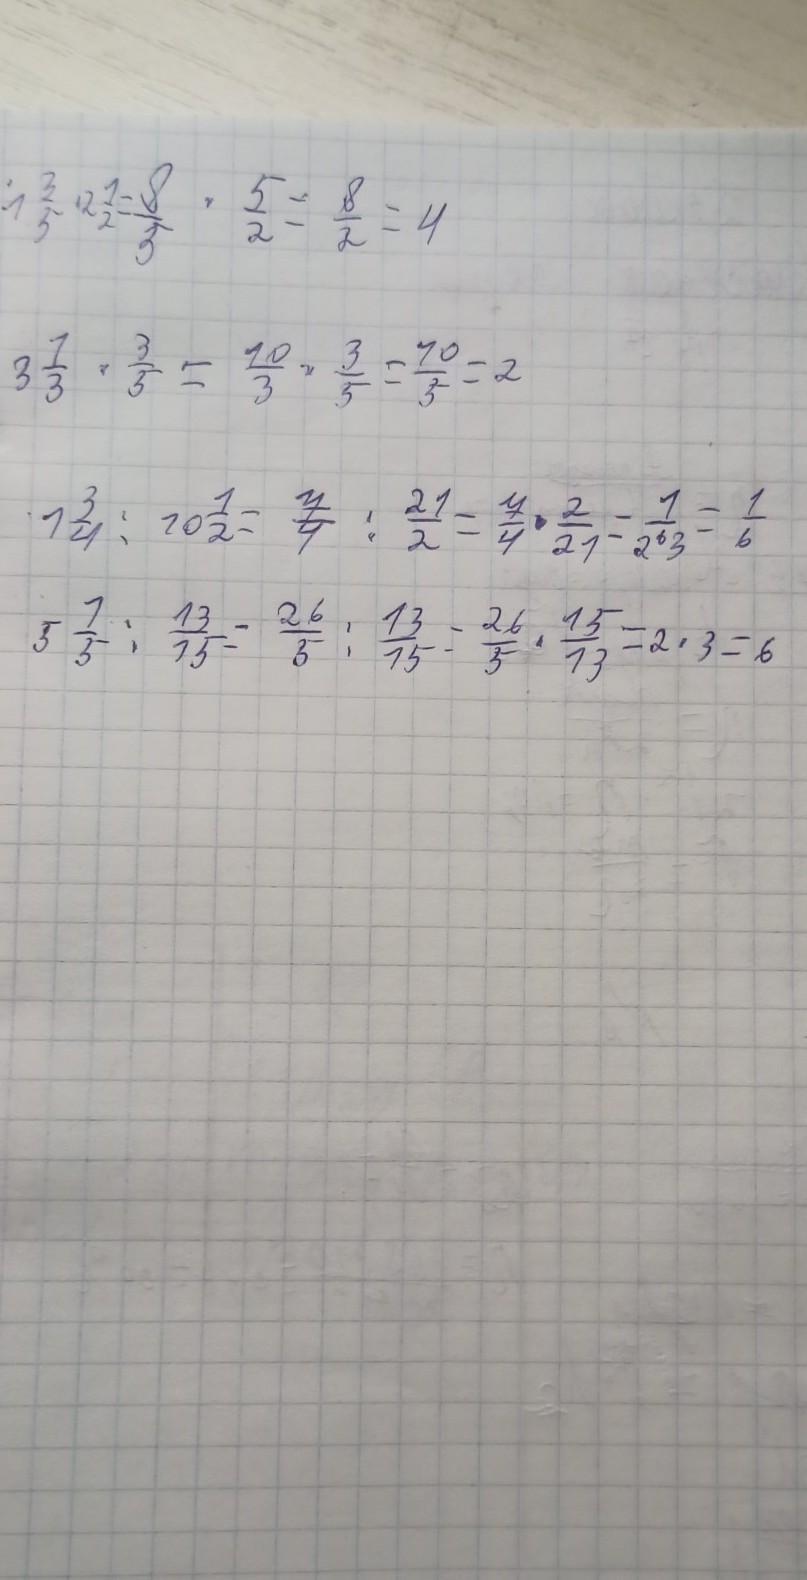 1 3/5 · 2 1/2 = 8/5 · 5/2 = 8/2 = 4
3 1/3 · 3/5 = 10/3 · 3/5 = 10/5 = 2
1 3/4 : 10 1/2 = 7/4 : 21/2 = 7/4 · 2/21 = 1/2·3 = 1/6
5 1/5 : 13/15 = 26/5 : 13/15 = 26/5 · 15/13 = 2 · 3 = 6